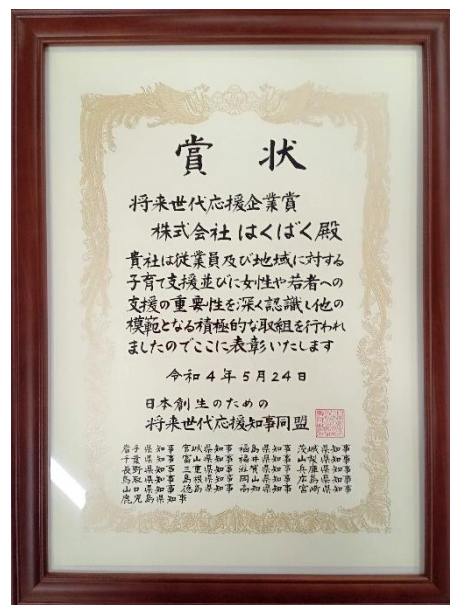 賞状
将来世代応援企業賞
株式会社はくばく殿
貴社は従業員及び地域に対する
子育て支援並びに女性や若者への
支援の重要性を深く認識し他の
模範となる積極的な取組を行われ
ましたのでここに表彰いたします
令和4年5月24日
日本創生のための
将来世代応援知事同盟
岩手県知事 宮城県知事 福島県知事 茨城県知事
千葉県知事 富山県知事 福井県知事 山梨県知事
長野県知事 三重県知事 滋賀県知事 兵庫県知事
鳥取県知事 島根県知事 岡山県知事 広島県知事
山口県知事 徳島県知事 高知県知事 宮崎県知事
鹿児島県知事